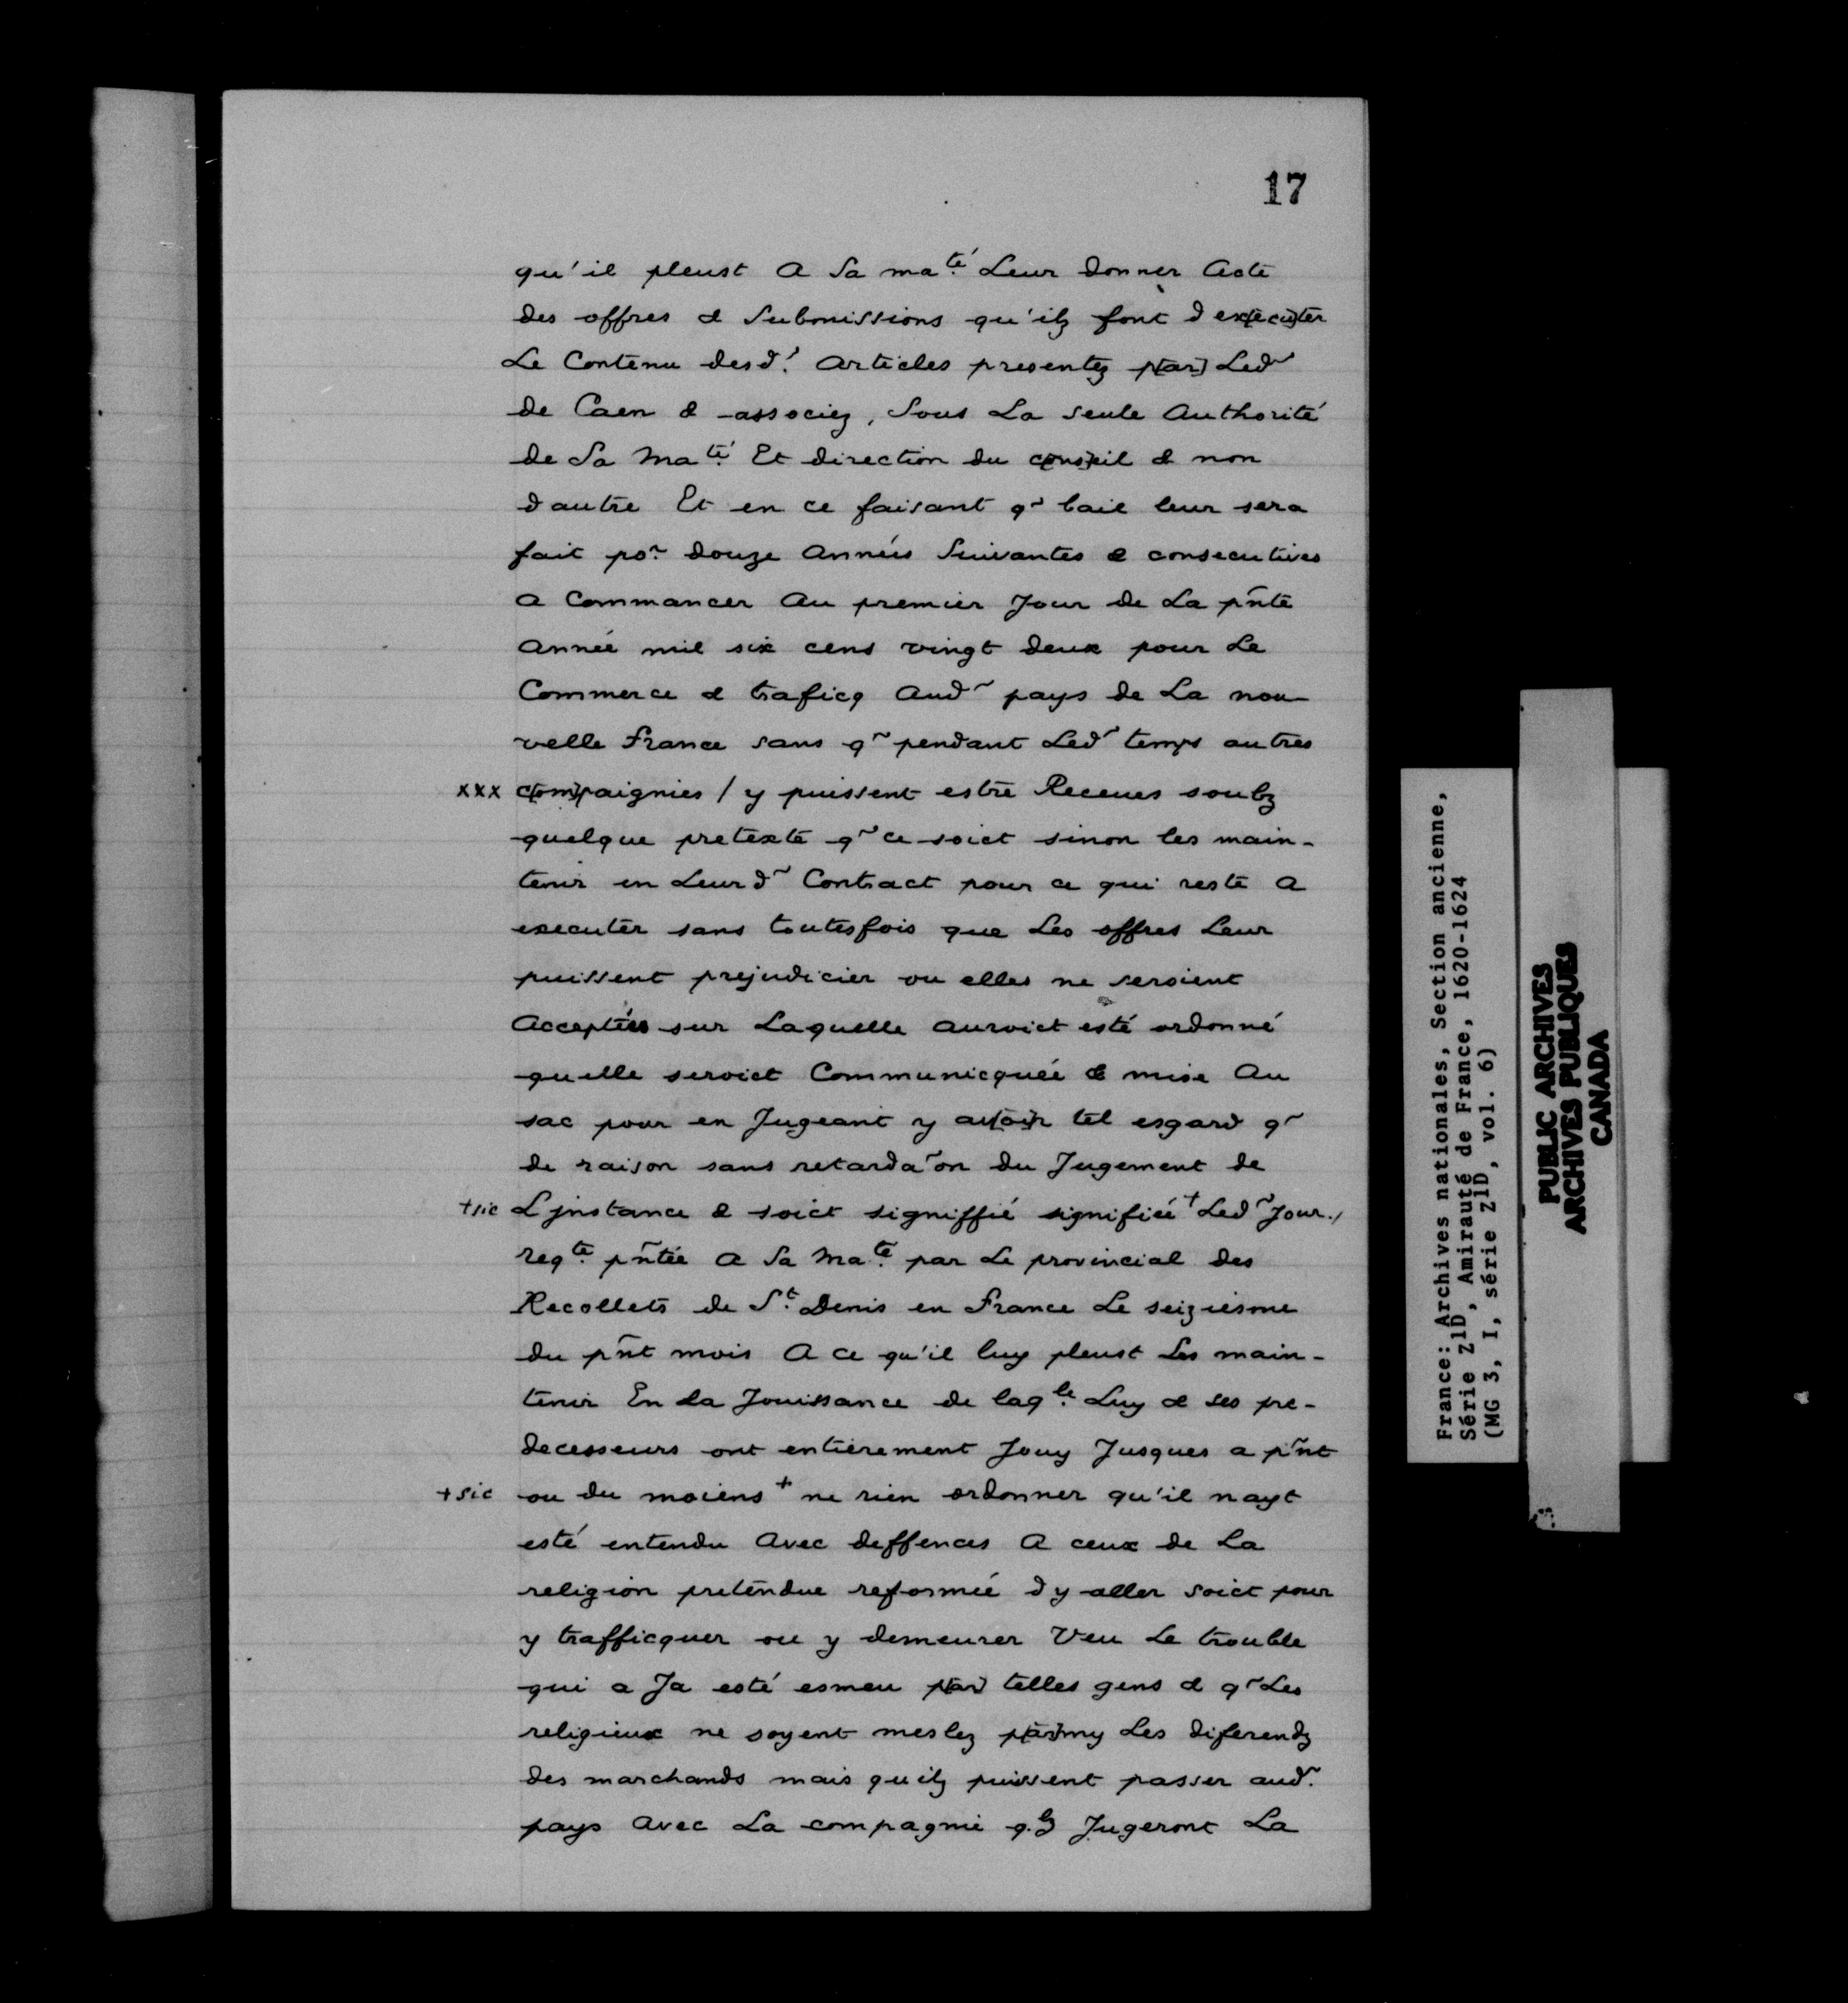 17
qu'il pleust A Sa ma.té Leur donner Acte
des offres & Submissions qu'ilz font d ex[ecu]ter
Le Contenu desd.~ Articles presentez p[ar] Led~
de Caen & associez, Sous La seule Authorité
de Sa Ma.té Et direction du c[ons]eil & non
dautre Et en ce faisant q~ bail leur sera
fait po.~ douze Années Suivantes & consecutives
a Commancer Au premier Jour de La p~nte
Année mil six cens vingt deux pour Le
Commerce & traficq Aud~ pays de La nou-
velle france sans q~ pendant Led~ temps autres
xxx c[om]paignies / y puissent estre Receues soubz
quelque pretexte q~ ce soict sinon les main-
tenir en Leurd~ Contract pour ce qui reste A
executer sans toutesfois que Les offres Leur
puissent prejudicier ou elles ne seroient
Acceptées sur Laquelle auroict esté ordonné
quelle seroict Communicquée & mise Au
sac pour en Jugeant y av[oi]r tel esgard q~
de raison sans retarda~on du Jugement de
+sic L jnstance & soict signiffié signifiée + Led~ Jour./
req.te p~ntée A Sa Ma.té par Le provincial des
Recollets de S.t Denis en france Le seiziesme
du p~nt mois A ce qu'il luy pleust Les main-
tenir En la Jouissance de laq.le Luy & ses pre-
decesseurs ont entierement Jouy Jusques a p~nt
+sic ou du moiens + ne rien ordonner qu'il nayt
esté entendu Avec deffences A ceux de La
religion pretendue reformée d y aller soict pour
y trafficquer ou y demeurer Veu Le trouble
qui a Ja esté esmeu p[ar] telles gens & q~ Les
religieux ne soyent meslez p[ar]my Les diferendz
des marchands mais quilz puissent passer aud.~
pays Avec La compagnie q.lz Jugeront La
France: Archives nationales, Section ancienne,
Série Z1D, Amirauté de France, 1620-1624
(MG 3, I, série Z1D, vol. 6)
PUBLIC ARCHIVES
ARCHIVES PUBLIQUES
CANADA